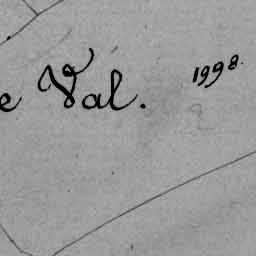 e Val.
1998.